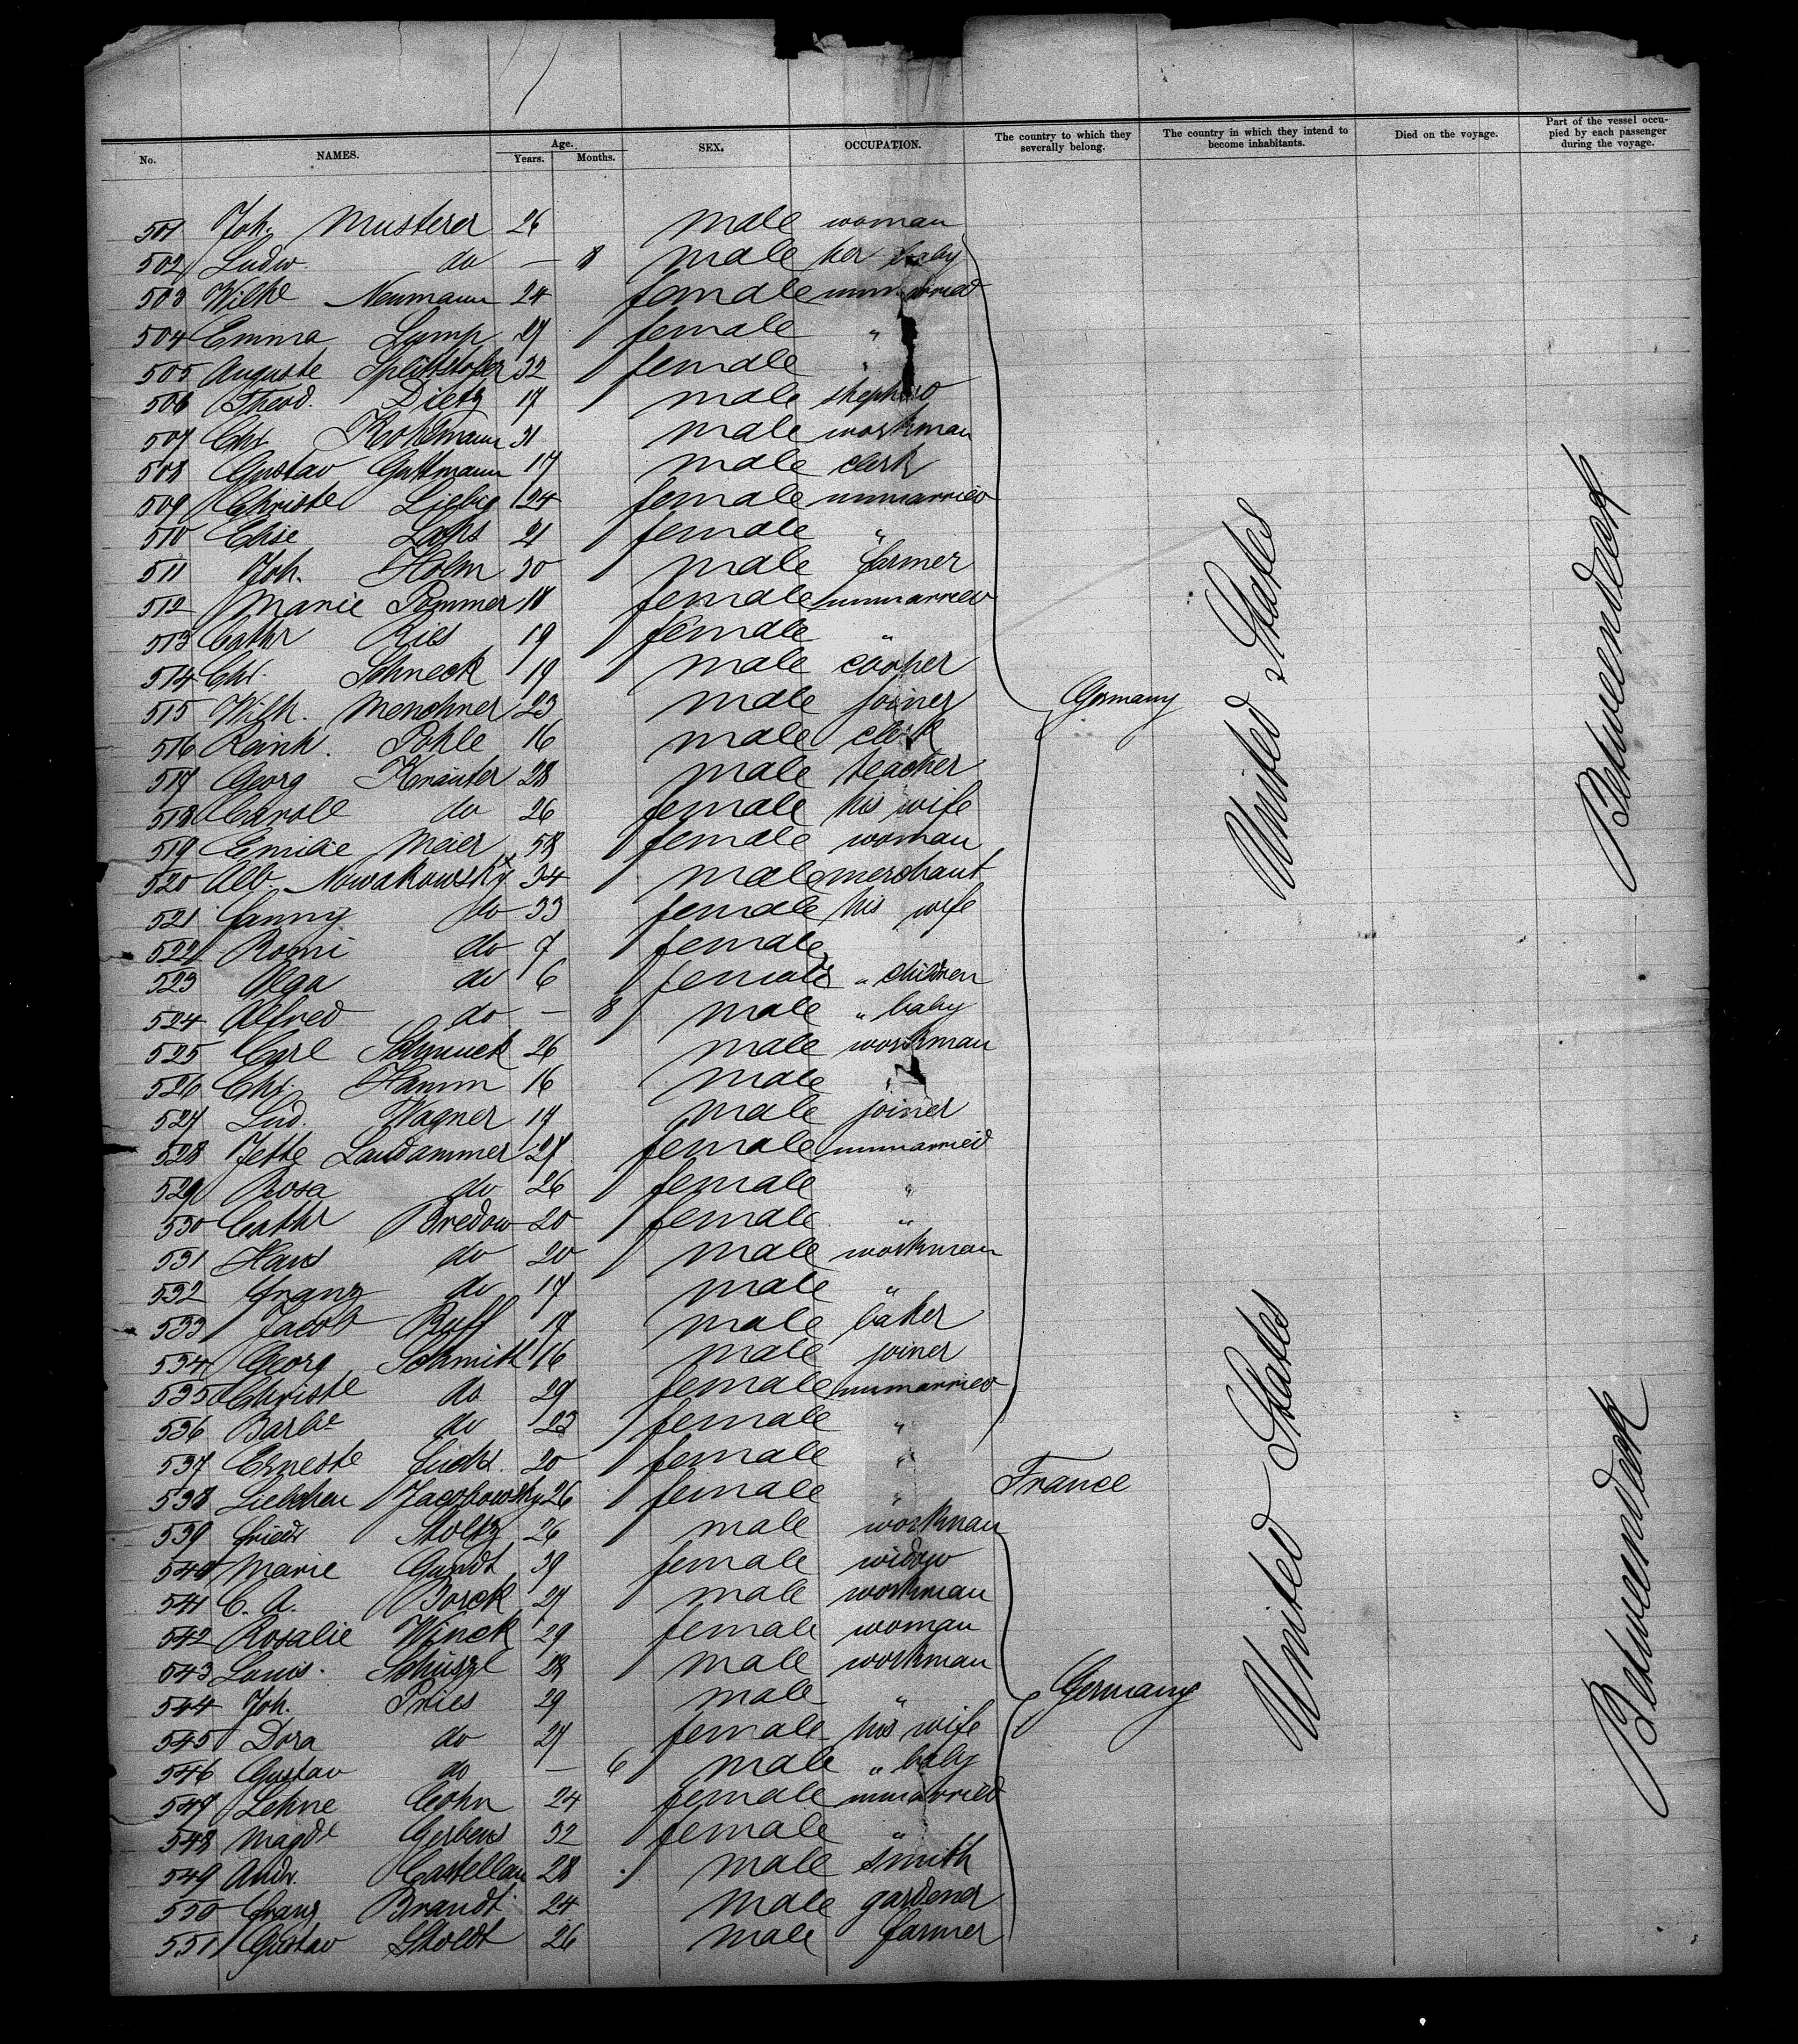 No. NAMES. Age. Years. Months. SEX. OCCUPATION. The country to which they severally belong. The country in which they intend to become inhabitants. Died on the voyage. Part of the vessel occupied by each passenger during the voyage.
501 Joh. Musterer 26 male woman
502 Ludw. do — 8 male her baby
503 Wilhe Neumann 24 female unmarried
504 Emma Lump 27 female "
505 Auguste 32 female "
506 Theod. Dietz 17 male
507 Chr. Kohlmann 31 male workman
508 Gustav Guttmann 17 male clerk
509 Christe Liebig 24 female unmarried
510 Elise 21 female "
511 Joh. Holm 30 male farmer
512 Marie Pommer 18 female unmarried
513 Cathr Ries 19 female "
514 Chr. Schneck 19 male cooper
515 Wilh. Menchner 23 male joiner
516 Reinh. Pohle 16 male clerk
517 Georg Kräuter 28 male teacher
518 Caroll do 26 female his wife
519 Emilie Meier 58 female woman
520 Alb. Nowakowsky 34 male merchant
521 Fanny do 33 female his wife
522 Romi do 7 female
523 Olga do 6 female " children
524 Alfred do — 8 male " baby
525 Carl Schmuck 26 male workman
526 Chr. Hamm 16 male "
527 Lud. Wagner 17 male joiner
528 Jette Landammer 27 female unmarried
529 Rosa do 26 female "
530 Cathr Bredow 20 female "
531 Hans do 20 male workman
532 Franz do 17 male "
533 Jacob Ruff 17 male baker
534 Georg Schmitt 16 male joiner
535 Christe do 29 female unmarried
536 Barbe do 23 female "
537 Erneste Fuchs 20 female "
538 Liebchen Jacobowsky 26 female "
539 Friedr Stoltz 26 male workman
540 Marie Gundt 39 female widow
541 C. A. Borck 27 male workman
542 Rosalie Winck 29 female woman
543 Louis. 28 male workman
544 Joh. Pries 29 male "
545 Dora do 27 female his wife
546 Gustav do — 6 male " baby
547 Lehne Cohn 24 female unmarried
548 Magde Gerbens 32 female "
549 Andr. Castellan 28 male smith
550 Franz Brandt 24 male gardener
551 Gustav Stoldt 26 male farmer
Germany
France
Germany
United States
United States
Betweendeck
Betweendeck